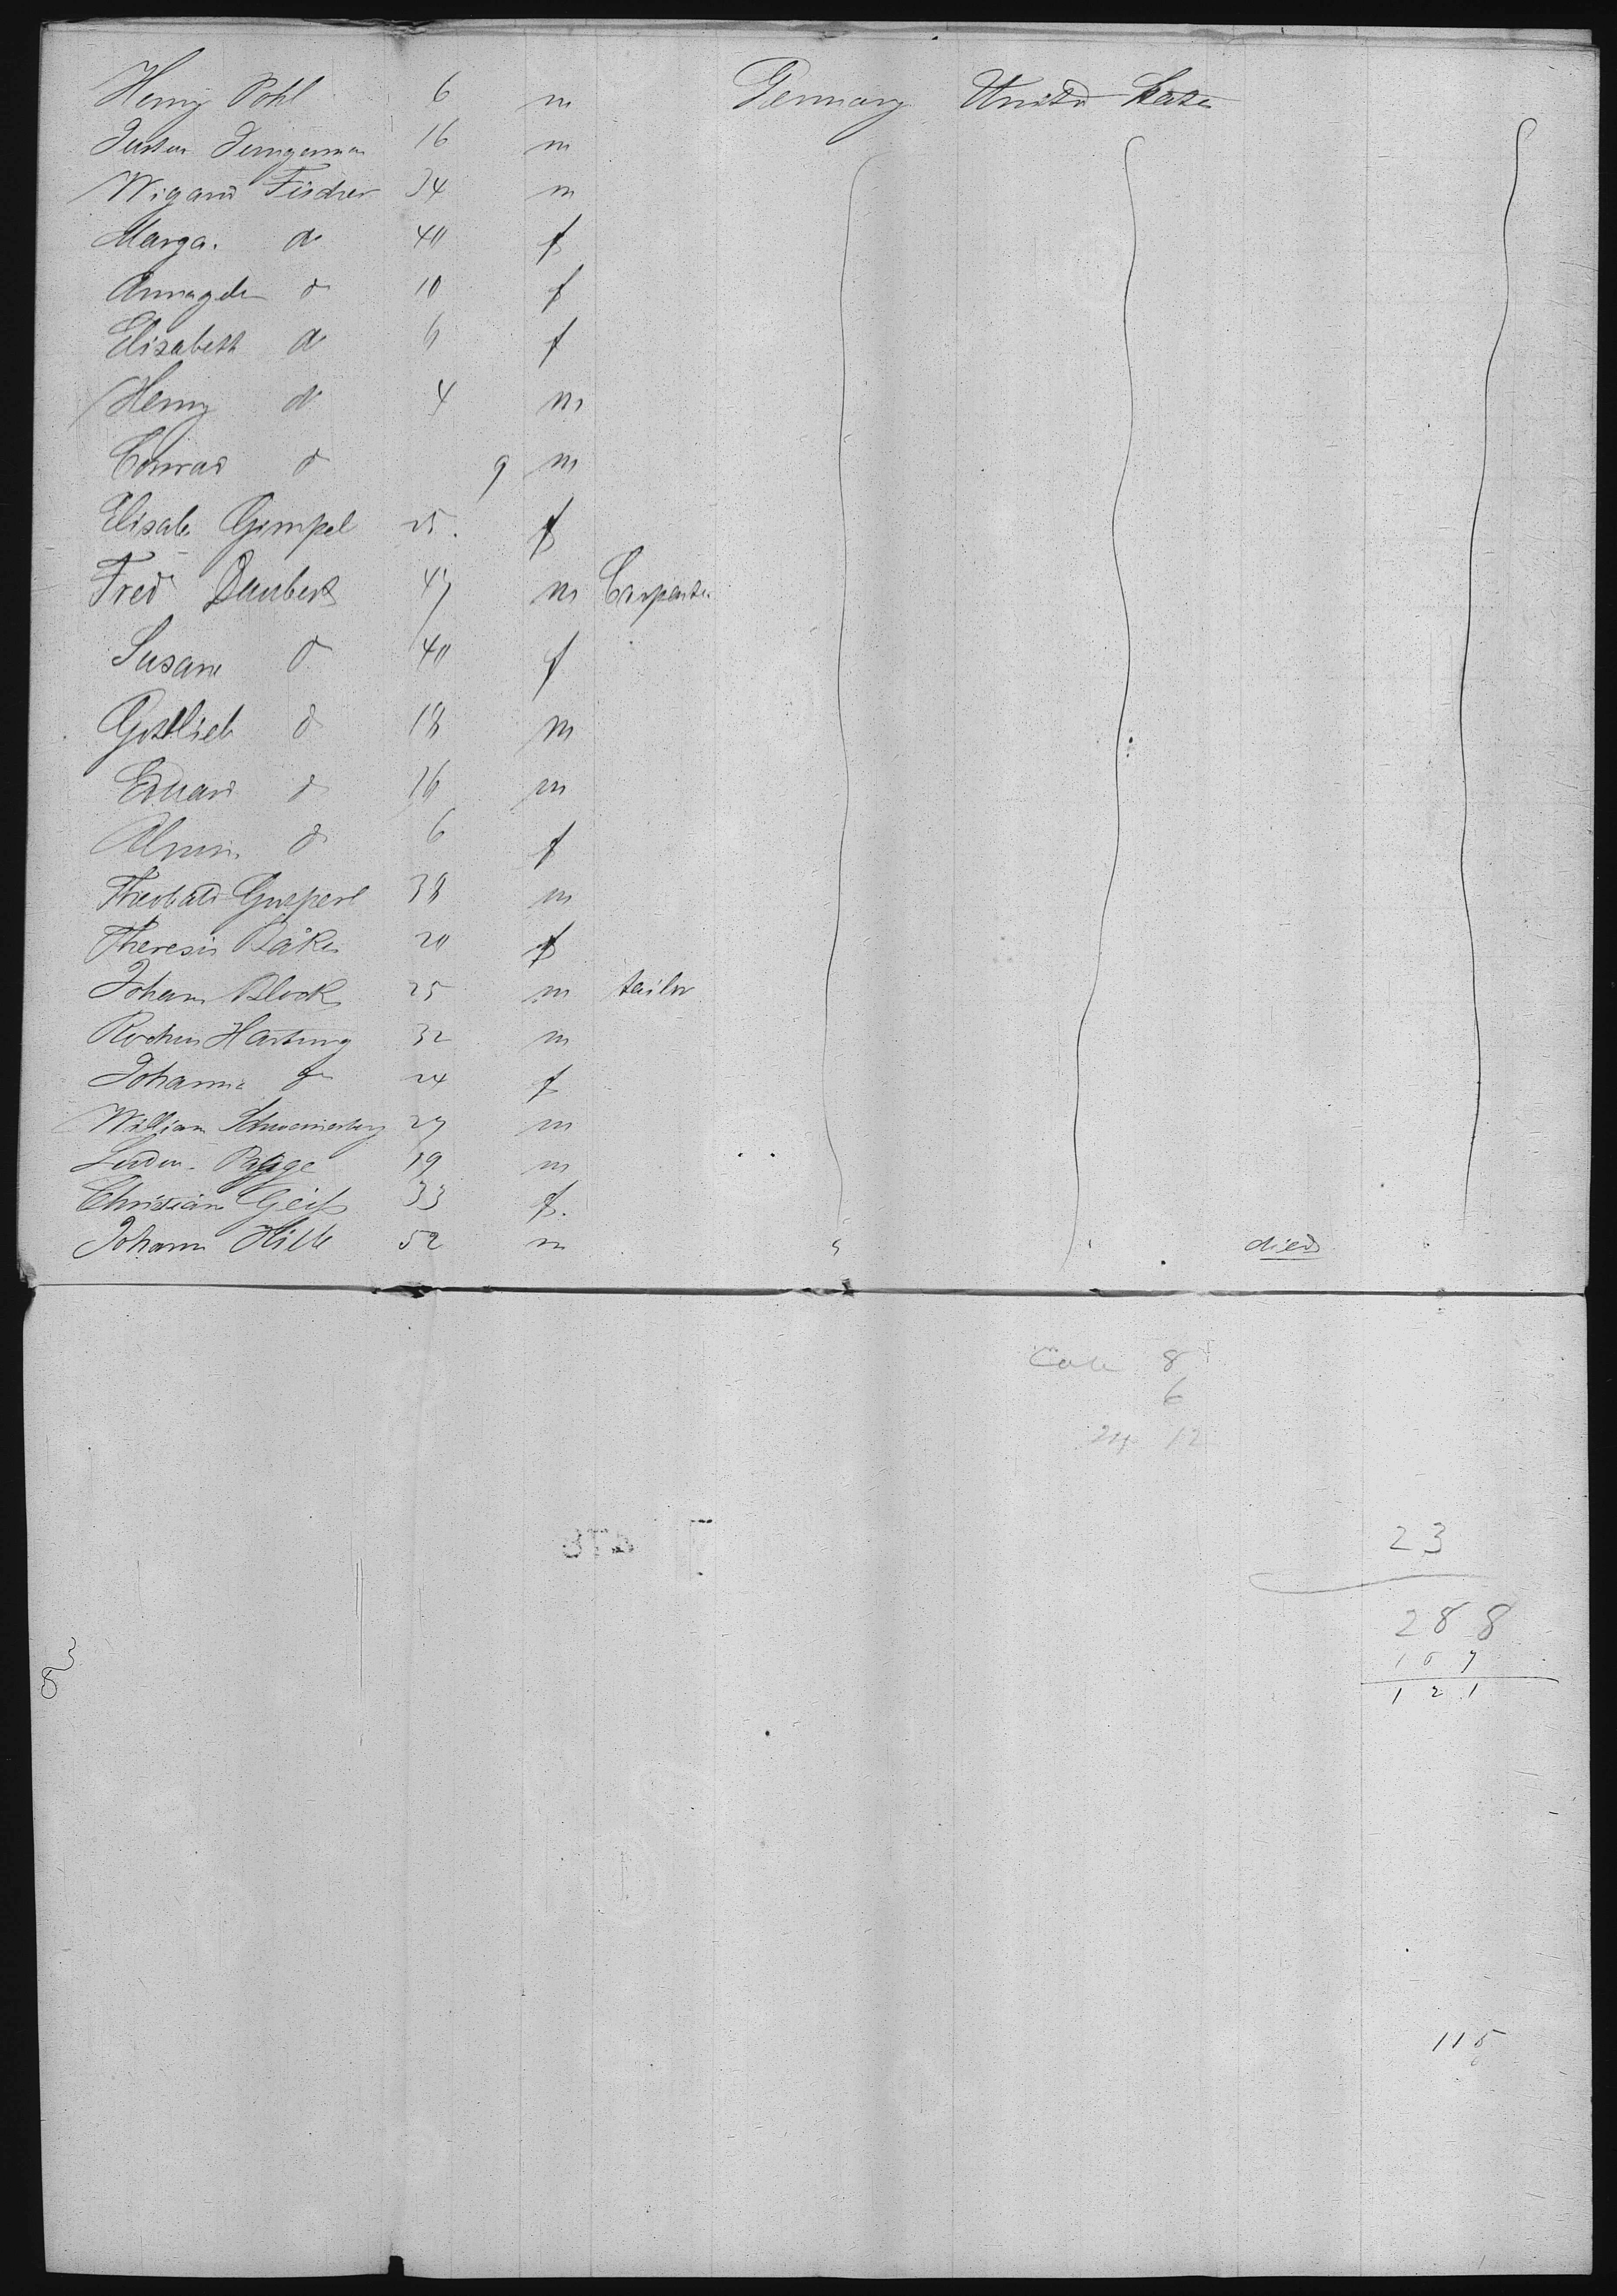 Henry Pohl 6 m Germany United States
Justus Jungerman 16 m
Wigand Fischer 34 m
Marga. do 40 f
Annagele do 10 f
Elisabeth do 6 f
Henry do 4 m
Conrad do 9 m
Elisab Gimpel 25. f
Fred Daubert 47 m Carpenter
Susann do 40 f
Gottlieb do 18 m
Eduard do 16 m
Alwin do 6 f
Theobald 38 m
Theresia Bäker 20 f
Johann Block 25 m tailor
Rochus Hartung 32 m
Johanna do 24 f
William 27 m
Ludw. 19 m
Christian Geiß 33 f.
Johann Hille 52 m died
8
6
24 12
23
288
167
121
115